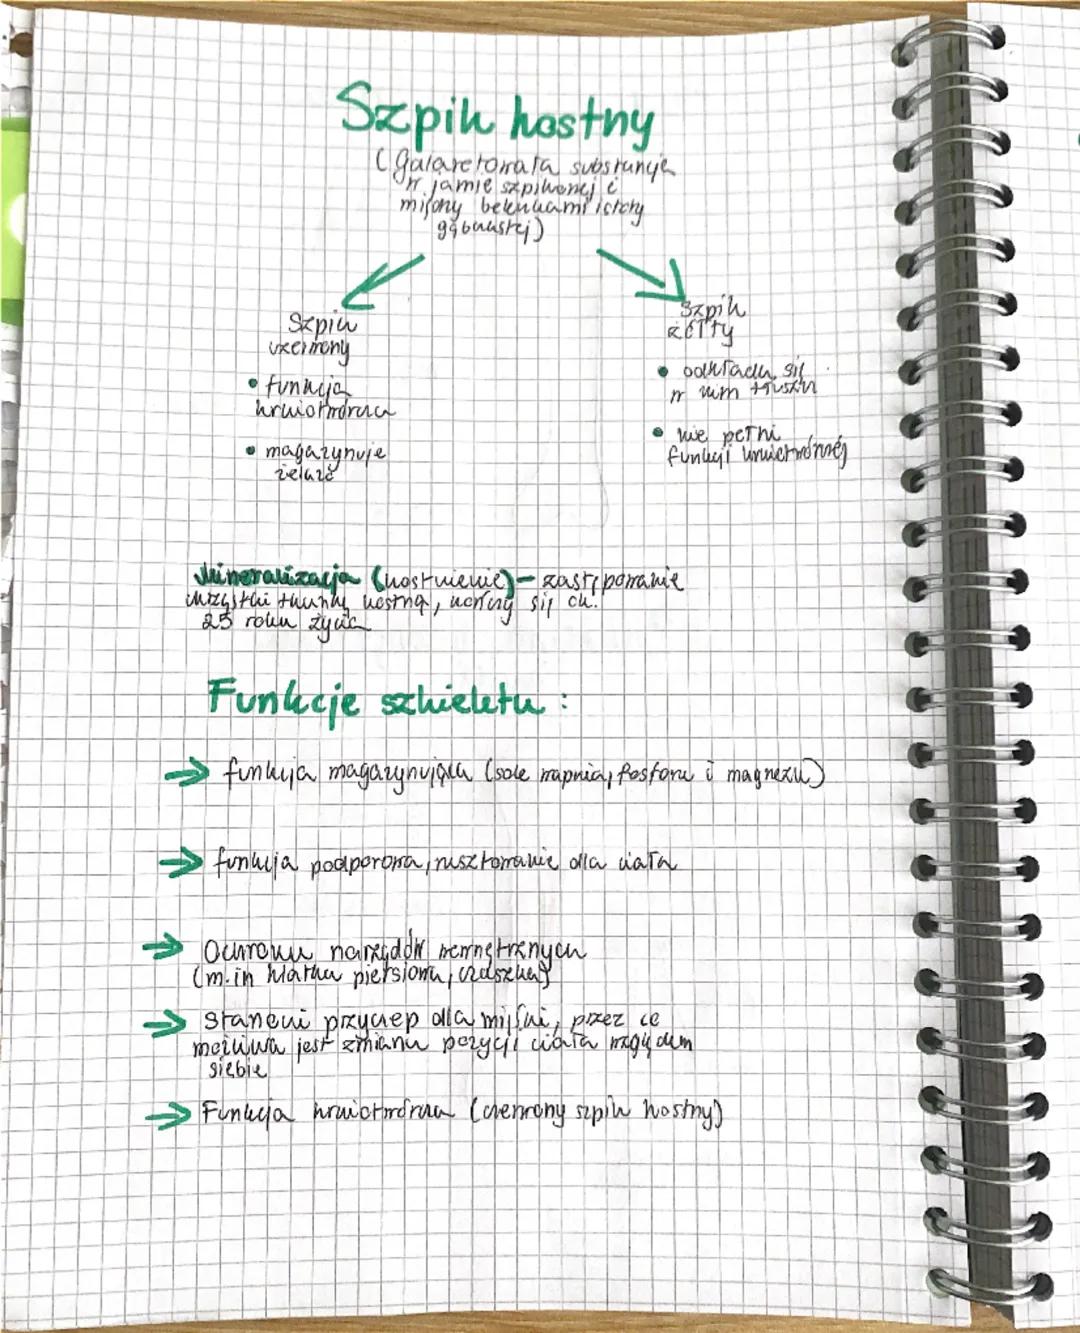 Szpik kostny
(galaretowata substancja
w jamie szpikowej i
między beleczkami istoty
gąbczastej)
Szpik
czerwony
• funkcja
krwiotwórcza
• magazynuje
żelazo
Szpik
żółty
• odkłada się
w nim tłuszcz
• nie pełni
funkcji krwiotwórczej
Mineralizacja (kostnienie) - zastępowanie
chrząstki tkanką kostną, kończy się ok.
25 roku życia
Funkcje szkieletu :
→ funkcja magazynująca (sole wapnia, fosforu i magnezu)
→ funkcja podporowa, rusztowanie dla ciała
→ Ochrona narządów wewnętrznych
(m.in klatka piersiowa, czaszka)
→ stanowi przyczep dla mięśni, przez co
możliwa jest zmiana pozycji ciała względem
siebie
→ Funkcja krwiotwórcza (czerwony szpik kostny)